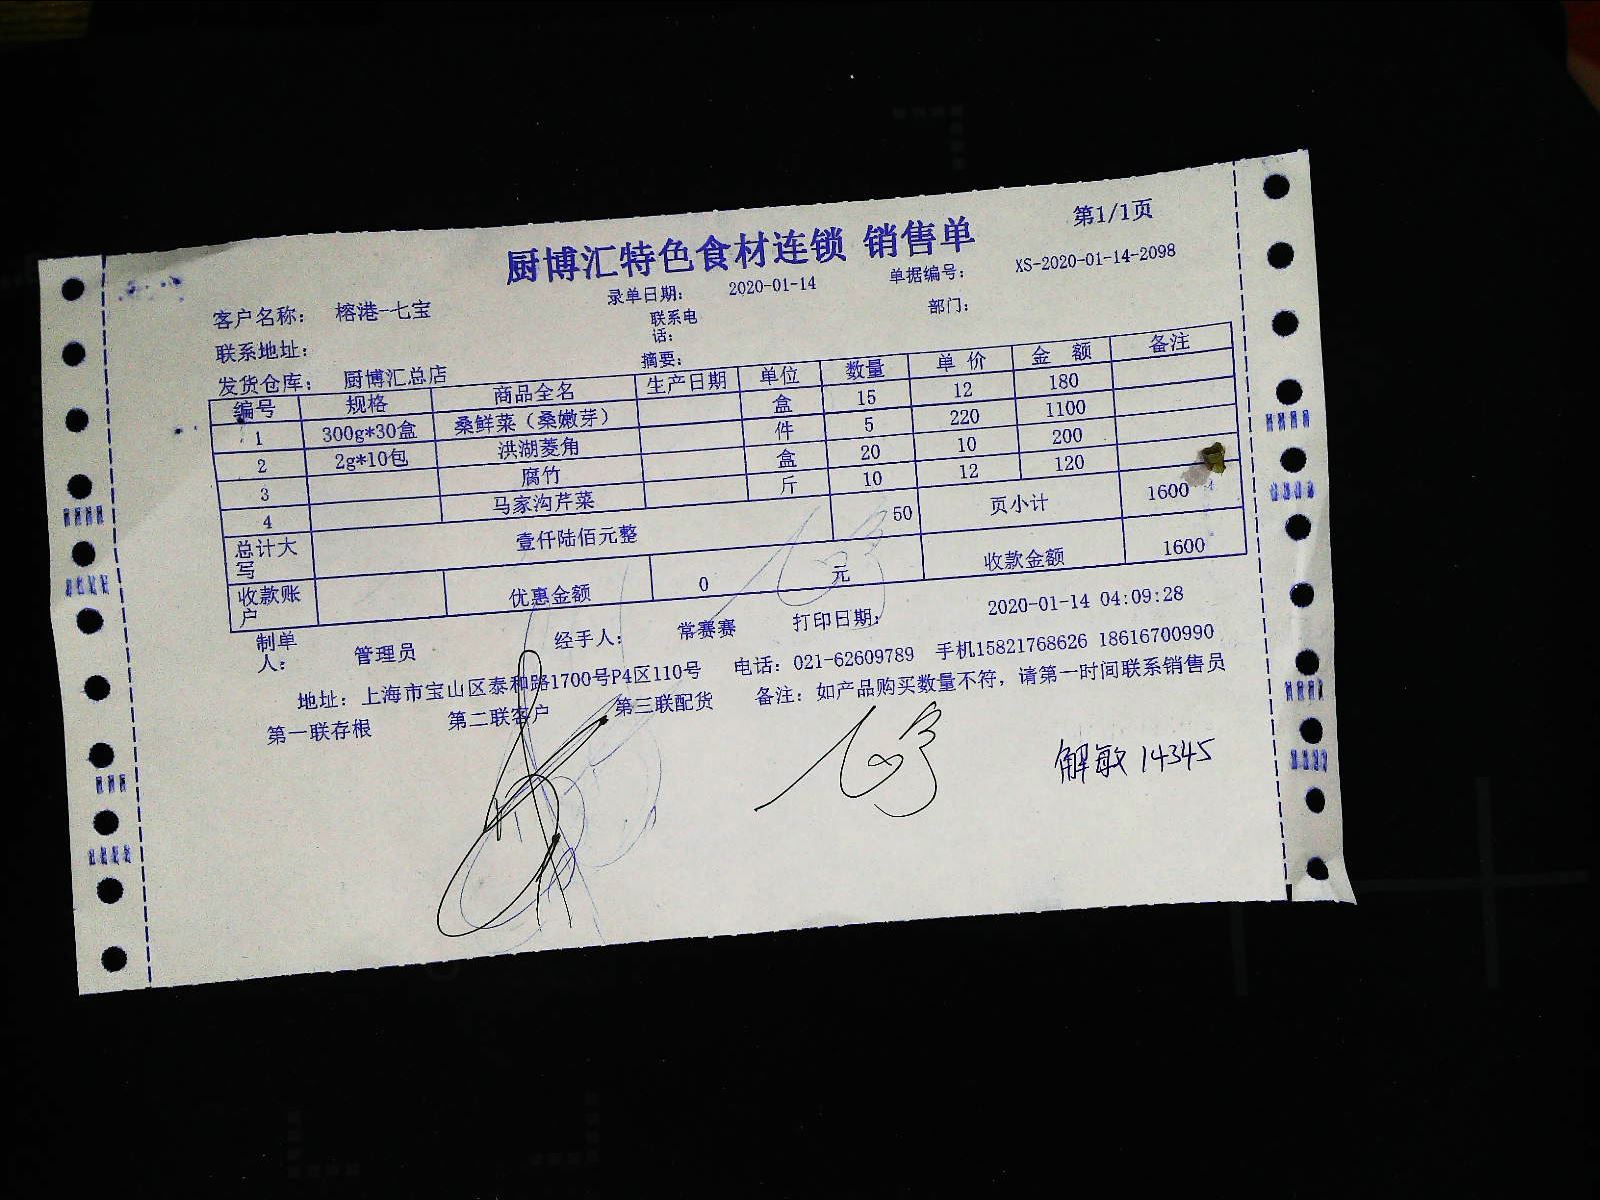 第1/1页
厨博汇特色食材连锁 销售单
客户名称： 榕港-七宝 录单日期： 2020-01-14 单据编号： XS-2020-01-14-2098
联系地址： 联系电话： 部门：
发货仓库： 厨博汇总店 摘要：
编号 规格 商品全名 生产日期 单位 数量 单 价 金 额 备注
1 300g*30盒 桑鲜菜（桑嫩芽） 盒 15 12 180
2 2g*10包 洪湖菱角 件 5 220 1100
3 腐竹 盒 20 10 200
4 马家沟芹菜 斤 10 12 120
总计大写 壹仟陆佰元整 50 页小计 1600
收款账户 优惠金额 0 元 收款金额 1600
制单人： 管理员 经手人： 常赛赛 打印日期： 2020-01-14 04:09:28
地址：上海市宝山区泰和路1700号P4区110号 电话：021-62609789 手机15821768626 18616700990
第一联存根 第二联客户 第三联配货 备注：如产品购买数量不符，请第一时间联系销售员
解敏 14345